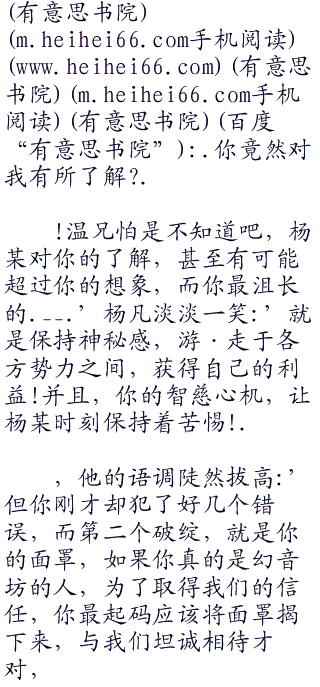 (有意思书院)
(m.heihei66.com手机阅读)
(www.heihei66.com)(有意思
书院)(m.heihei66.com手机
阅读)(有意思书院)(百度
“有意思书院”):.你竟然对
我有所了解?.
!温兄怕是不知道吧，杨
某对你的了解，甚至有可能
超过你的想象，而你最沮长
的.---.’杨凡淡淡一笑:’就
是保持神秘感，游·走于各
方势力之间，获得自己的利
益!并且，你的智慈心机，让
杨某时刻保持着苦惕!.
，他的语调陡然拔高:’
但你刚才却犯了好几个错
误，而第二个破绽，就是你
的面罩，如果你真的是幻音
坊的人，为了取得我们的信
任，你最起码应该将面罩揭
下来，与我们坦诚相待才
对，